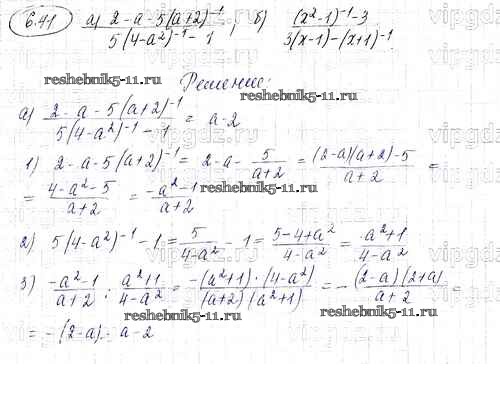 6.41 а) (2-a-5(a+2)⁻¹)/(5(4-a²)⁻¹-1) ; б) ((x²-1)⁻¹-3)/(3(x-1)-(x+1)⁻¹)
reshebnik5-11.ru reshebnik5-11.ru
Решение:
а) (2-a-5(a+2)⁻¹)/(5(4-a²)⁻¹-1) = a-2
reshebnik5-11.ru
1) 2-a-5(a+2)⁻¹ = 2-a-5/(a+2) = ((2-a)(a+2)-5)/(a+2) =
= (4-a²-5)/(a+2) = (-a²-1)/(a+2)
reshebnik5-11.ru
2) 5(4-a²)⁻¹-1 = 5/(4-a²) - 1 = (5-4+a²)/(4-a²) = (a²+1)/(4-a²)
3) (-a²-1)/(a+2) : (a²+1)/(4-a²) = (-(a²+1)·(4-a²))/((a+2)(a²+1)) = -((2-a)(2+a))/(a+2) =
reshebnik5-11.ru
= -(2-a) = a-2
reshebnik5-11.ru
vipgdz.ru